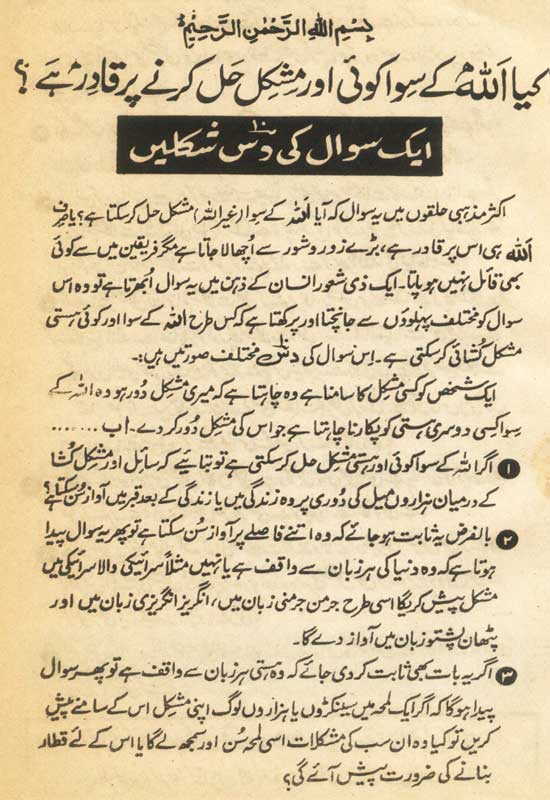 بِسْمِ اللهِ الرَّحْمٰنِ الرَّحِيْمِ
کیا اَللہ کے سِوا کوئی اور مشکل حَل کرنے پر قادِر ہے؟
ایک سوال کی دس شکلیں
اکثر مذہبی حلقوں میں یہ سوال کہ آیا اَللہ کے سوا (غیراللہ) مشکل حل کرسکتا ہے؟ یا صِرف
اَللہ ہی اس پر قادر ہے، بڑے زور و شور سے اُچھالا جاتا ہے مگر فریقین میں سے کوئی
بھی قائل نہیں ہو پاتا۔ ایک ذی شعور انسان کے ذہن میں یہ سوال اُبھرتا ہے تو وہ اس
سوال کو مختلف پہلوؤں سے جانچتا اور پرکھتا ہے کہ کس طرح اللہ کے سوا اور کوئی ہستی
مشکل کُشائی کرسکتی ہے۔ اِس سوال کی دسؔ مختلف صورتیں ہیں:۔
ایک شخص کو کسی مشکل کا سامنا ہے وہ چاہتا ہے کہ میری مشکل دُور ہو وہ اللہ کے
سوا کسی دوسری ہستی کو پکارنا چاہتا ہے جو اس کی مشکل دُور کر دے۔ اب .......
۱ اگر اللہ کے سوا کوئی اور ہستی مشکل حل کر سکتی ہے تو بتائیے کہ سائل اور مشکل کُشا
کے درمیان ہزاروں میل کی دُوری پر وہ زندگی میں یا زندگی کے بعد قبر میں آواز سُن سکتا ہے؟
۲ بالفرض یہ ثابت ہو جائے کہ وہ اتنے فاصلے پر آواز سُن سکتا ہے تو پھر یہ سوال پیدا
ہوتا ہے کہ وہ دنیا کی ہر زبان سے واقف ہے یا نہیں مثلاً سرائیکی والا سرائیکی میں
مشکل پیش کریگا اسی طرح جرمن جرمنی زبان میں، انگریز انگریزی زبان میں اور
پٹھان پشتو زبان میں آواز دے گا۔
۳ اگر یہ بات بھی ثابت کر دی جائے کہ وہ ہستی ہر زبان سے واقف ہے تو پھر سوال
پیدا ہوگا کہ اگر ایک لمحہ میں سینکڑوں یا ہزاروں لوگ اپنی مشکل اس کے سامنے پیش
کریں تو کیا وہ ان سب کی مشکلات اسی لمحہ سُن اور سمجھ لے گا یا اس کے لئے قطار
بنانے کی ضرورت پیش آئے گی؟